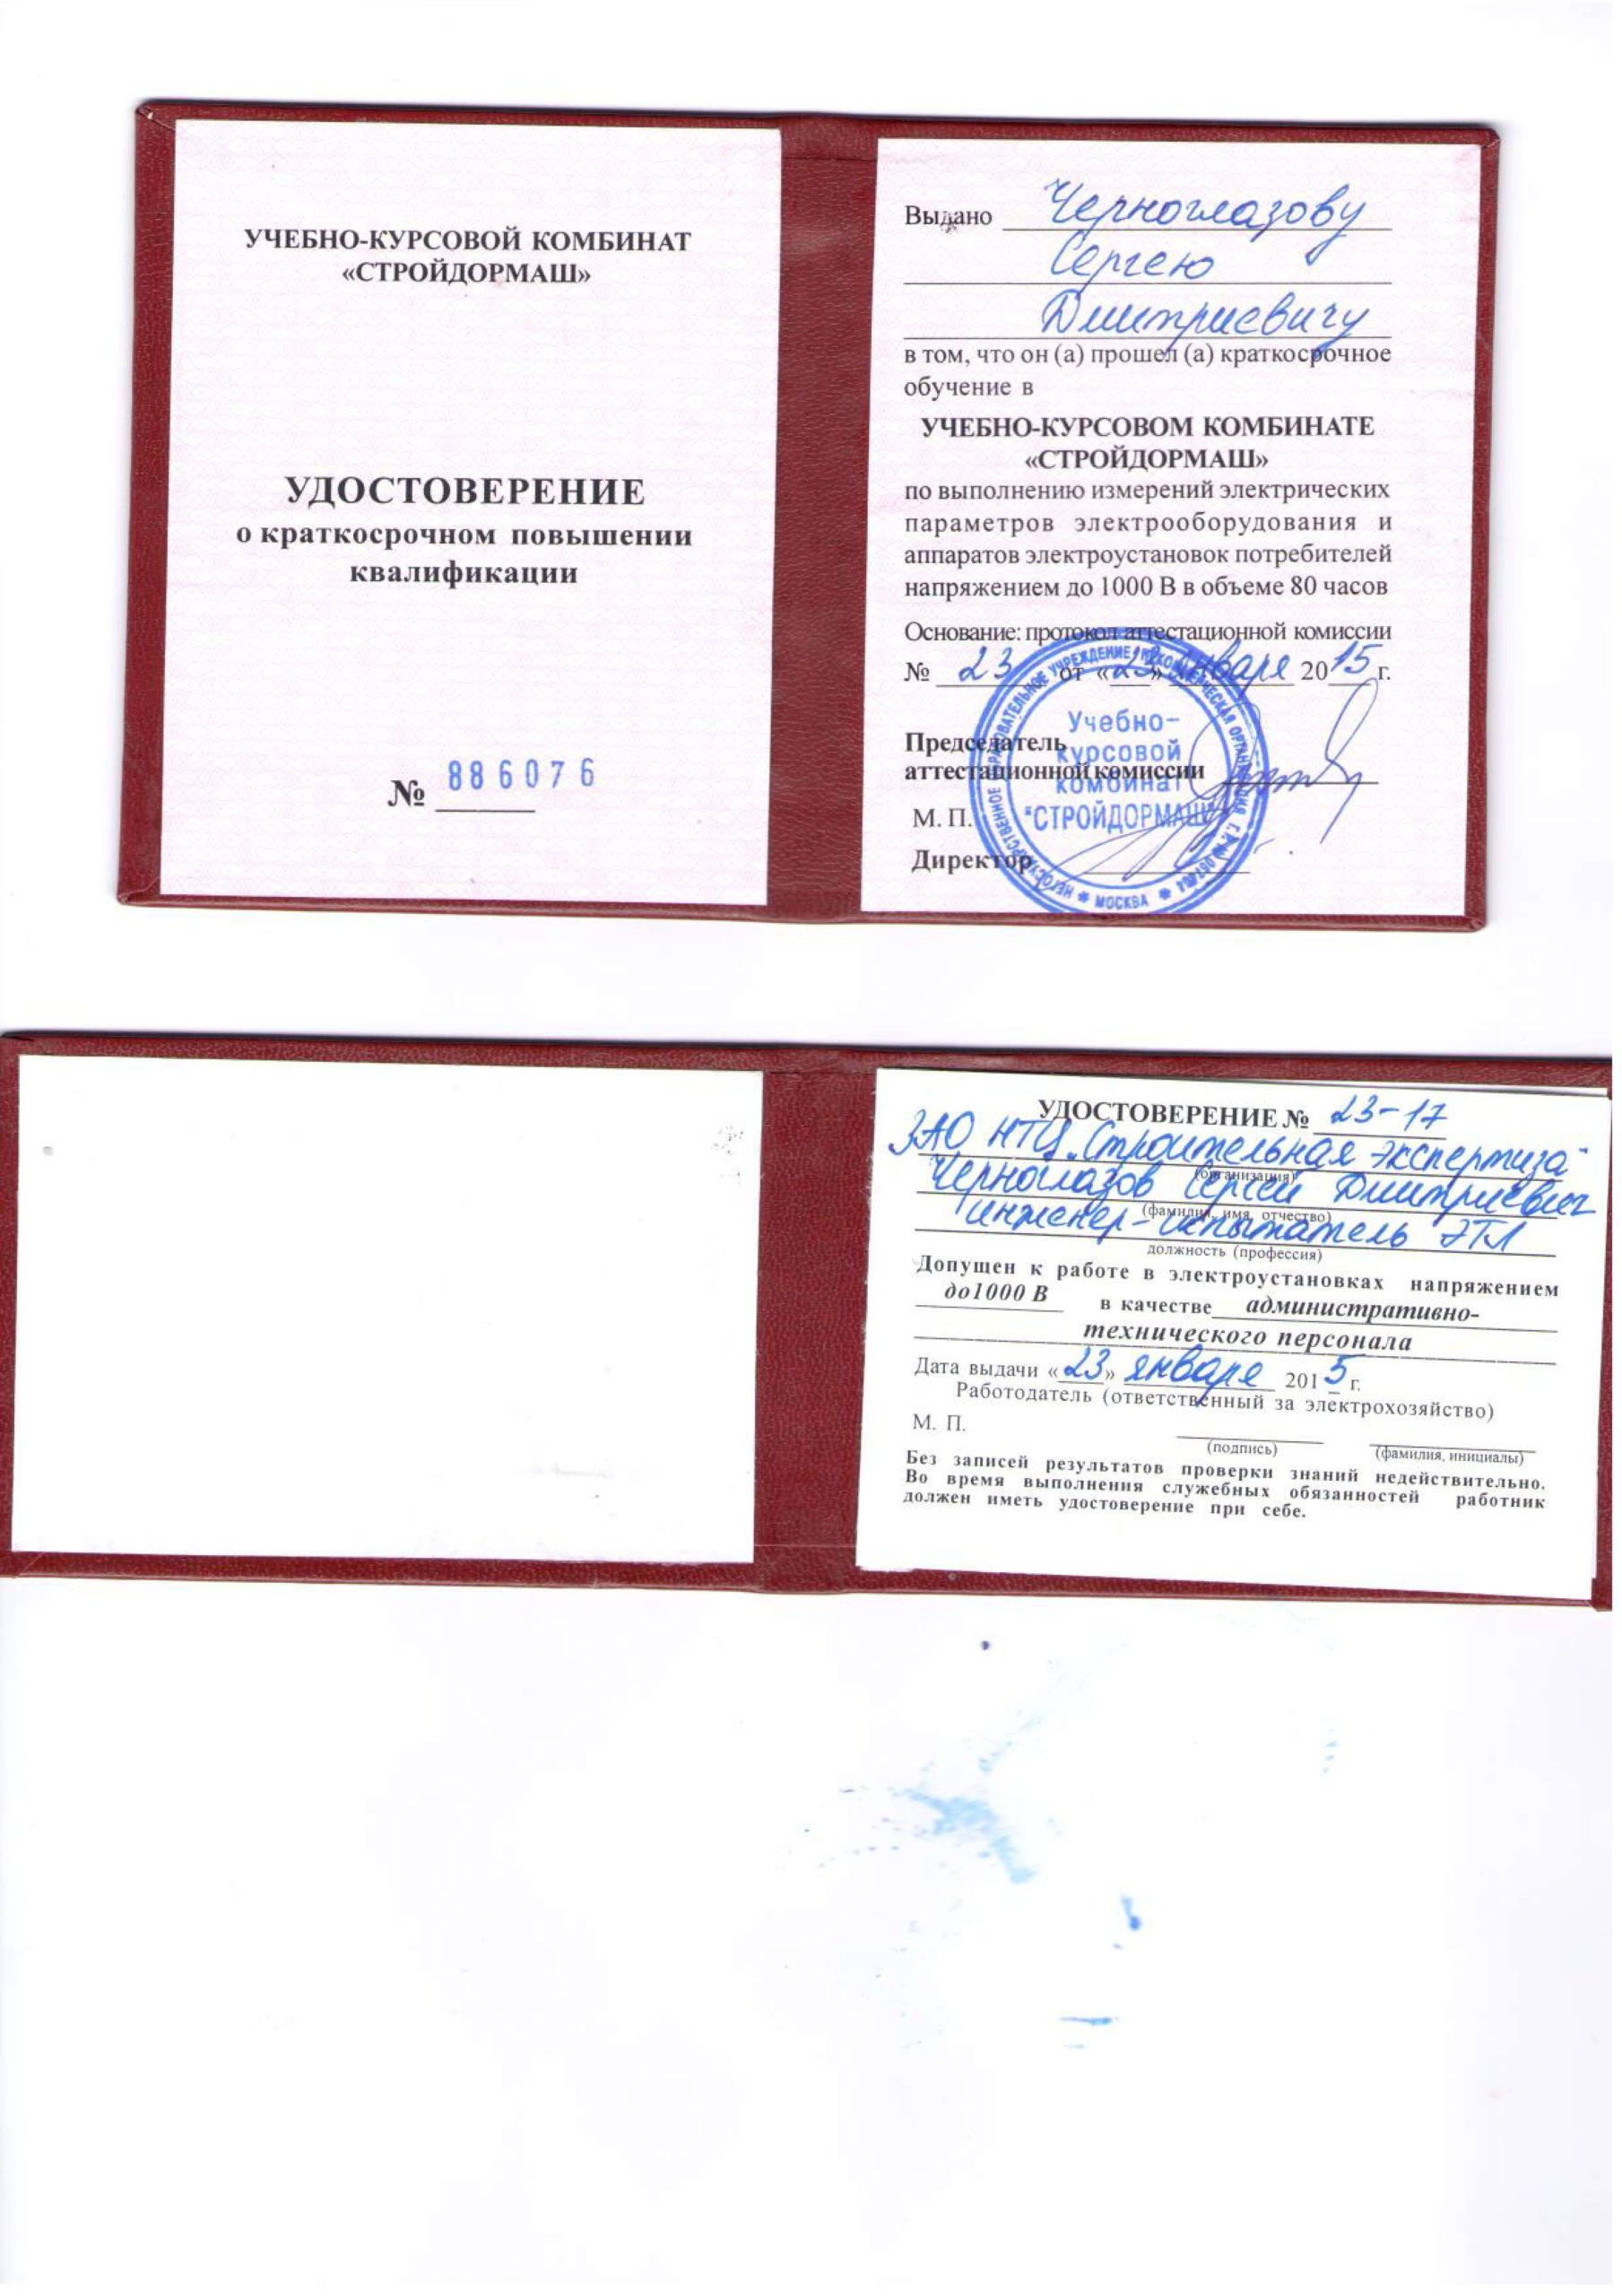 УЧЕБНО-КУРСОВОЙ КОМБИНАТ
«СТРОЙДОРМАШ»
УДОСТОВЕРЕНИЕ
о краткосрочном повышении
квалификации
№ 886076
Выдано Черноглазову
Сергею
Дмитриевичу
в том, что он (а) прошел (а) краткосрочное
обучение в
УЧЕБНО-КУРСОВОМ КОМБИНАТЕ
«СТРОЙДОРМАШ»
по выполнению измерений электрических
параметров электрооборудования и
аппаратов электроустановок потребителей
напряжением до 1000 В в объеме 80 часов
Основание: протокол аттестационной комиссии
№ 23 от «23» января 2015 г.
Председатель
аттестационной комиссии
М. П.
Директор
НЕГОСУДАРСТВЕННОЕ ОБРАЗОВАТЕЛЬНОЕ УЧРЕЖДЕНИЕ НЕКОММЕРЧЕСКАЯ ОРГАНИЗАЦИЯ
МОСКВА
Учебно-
курсовой
комбинат
"СТРОЙДОРМАШ"
УДОСТОВЕРЕНИЕ № 23-17
ЗАО НТЦ „Строительная экспертиза"
(организация)
Черноглазов Сергей Дмитриевич
(фамилия, имя, отчество)
инженер-испытатель ЭТЛ
должность (профессия)
Допущен к работе в электроустановках напряжением
до1000 В в качестве административно-
технического персонала
Дата выдачи «23» января 2015 г.
Работодатель (ответственный за электрохозяйство)
М. П.
(подпись) (фамилия, инициалы)
Без записей результатов проверки знаний недействительно.
Во время выполнения служебных обязанностей работник
должен иметь удостоверение при себе.